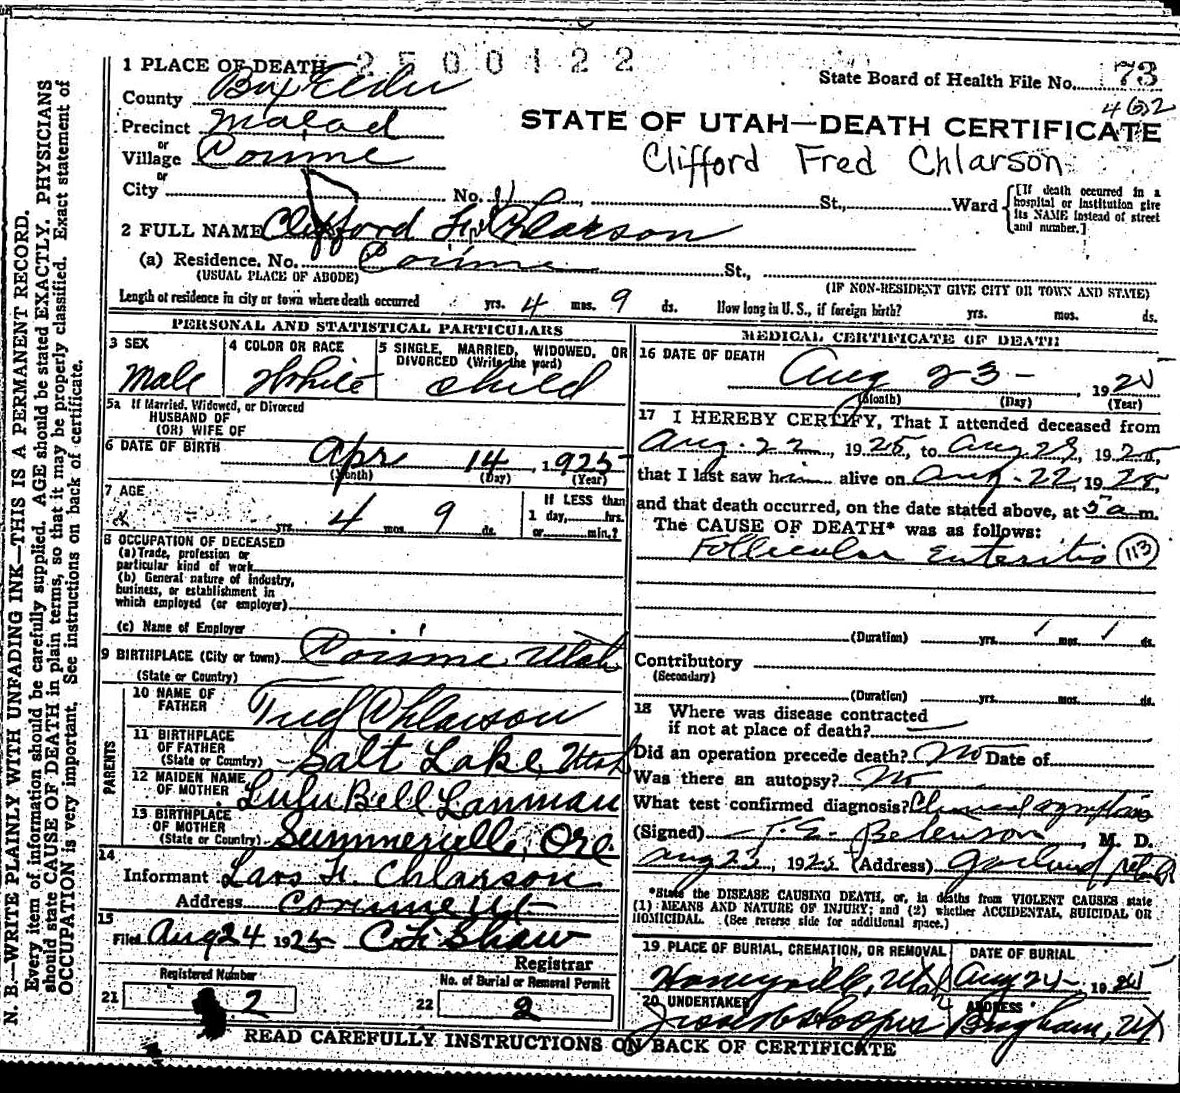 1 PLACE OF DEATH 2500122
State Board of Health File No. 73
County Box Elder
462
Precinct Malad
STATE OF UTAH—DEATH CERTIFICATE
or
Village Corinne
Clifford Fred Chlarson
or
City No. St., Ward [If death occurred in a hospital or institution give its NAME instead of street and number.]
2 FULL NAME Clifford Fred Chlarson
(a) Residence. No. Corinne St.,
(USUAL PLACE OF ABODE) (IF NON-RESIDENT GIVE CITY OR TOWN AND STATE)
Length of residence in city or town where death occurred yrs. 4 mos. 9 ds. How long in U. S., if foreign birth? yrs. mos. ds.
PERSONAL AND STATISTICAL PARTICULARS
3 SEX
Male
4 COLOR OR RACE
White
5 SINGLE, MARRIED, WIDOWED, OR
DIVORCED (Write the word)
Child
5a If Married, Widowed, or Divorced
HUSBAND OF
(OR) WIFE OF
6 DATE OF BIRTH
Apr 14, 1925
(Month) (Day) (Year)
7 AGE
yrs. 4 mos. 9 ds.
If LESS than
1 day, hrs.
or min.?
8 OCCUPATION OF DECEASED
(a) Trade, profession or
particular kind of work
(b) General nature of industry,
business, or establishment in
which employed (or employer)
(c) Name of Employer
9 BIRTHPLACE (City or town) Corinne Utah
(State or Country)
PARENTS
10 NAME OF
FATHER Fred Chlarson
11 BIRTHPLACE
OF FATHER
(State or Country) Salt Lake, Utah
12 MAIDEN NAME
OF MOTHER Lulu Bell Lanman
13 BIRTHPLACE
OF MOTHER
(State or Country) Summerville, Ore
14
Informant Lars F. Chlarson
Address Corinne Ut
15
Filed Aug 24 1925 C F Shaw
Registrar
Registered Number
21 2
No. of Burial or Removal Permit
22 2
MEDICAL CERTIFICATE OF DEATH
16 DATE OF DEATH
Aug 23 - 1925
(Month) (Day) (Year)
17 I HEREBY CERTIFY, That I attended deceased from
Aug. 22, 1925, to Aug 23, 1925,
that I last saw him alive on Aug. 22, 1925,
and that death occurred, on the date stated above, at 5 a.m.
The CAUSE OF DEATH* was as follows:
Follicular Enteritis 113
(Duration) yrs. mos. ds.
Contributory
(Secondary)
(Duration) yrs. mos. ds.
18 Where was disease contracted
if not at place of death?
Did an operation precede death? No Date of
Was there an autopsy? No
What test confirmed diagnosis? Clinical symptoms
(Signed) , M. D.
Aug 23, 1925 (Address) Garland, Utah
*State the DISEASE CAUSING DEATH, or, in deaths from VIOLENT CAUSES state
(1) MEANS AND NATURE OF INJURY; and (2) whether ACCIDENTAL, SUICIDAL OR
HOMICIDAL. (See reverse side for additional space.)
19 PLACE OF BURIAL, CREMATION, OR REMOVAL
Honeyville, Utah
DATE OF BURIAL
Aug 24-, 1925
20 UNDERTAKER
ADDRESS
Brigham, Ut
READ CAREFULLY INSTRUCTIONS ON BACK OF CERTIFICATE
N. B.—WRITE PLAINLY WITH UNFADING INK—THIS IS A PERMANENT RECORD.
Every item of information should be carefully supplied. AGE should be stated EXACTLY. PHYSICIANS
should state CAUSE OF DEATH in plain terms, so that it may be properly classified. Exact statement of
OCCUPATION is very important. See instructions on back of certificate.